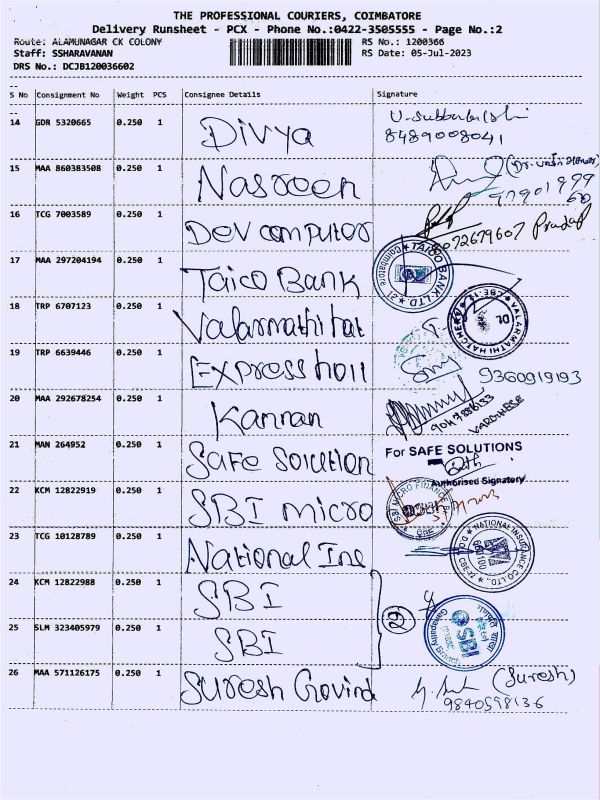 THE PROFESSIONAL COURIERS, COIMBATORE
Delivery Runsheet - PCX - Phone No.:0422-3505555 - Page No.:2
Route: ALAMUNAGAR CK COLONY RS No.: 1200366
Staff: SSHARAVANAN RS Date: 05-Jul-2023
DRS No.: DCJB120036602
S No Consignment No Weight PCS Consignee Details Signature
14 GDR 5320665 0.250 1 Divya
8489008041
15 MAA 860383508 0.250 1 Nasreen
16 TCG 7003589 0.250 1 Dev computer
8072679607 Pradap
17 MAA 297204194 0.250 1 Taico Bank TAICO BANK LTD. Coimbatore
18 TRP 6707123 0.250 1 Valarmathi hat VALARMATHI HATCHERY CBE-12
19 TRP 6639446 0.250 1 Express holl 9360919193
20 MAA 292678254 0.250 1 Kannan
21 MAN 264952 0.250 1 Safe Solution For SAFE SOLUTIONS
Authorised Signatory
22 KCM 12822919 0.250 1 SBI micro
23 TCG 10128789 0.250 1 National Ins NATIONAL INSURANCE CO LTD.
24 KCM 12822988 0.250 1 SBI
25 SLM 323405979 0.250 1 SBI SBI Ganapathy Branch
26 MAA 571126175 0.250 1 Suresh Govind (Suresh)
9840598136